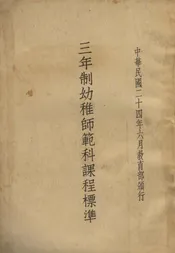 中華民國二十四年六月教育部頒行
三年制幼稚師範科課程標準